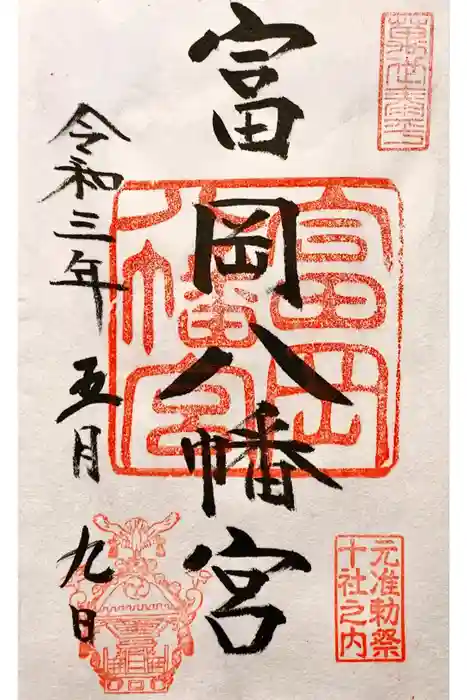 元准勅祭
十社之内
富岡八幡宮
富岡
八幡宮
令和三年五月九日